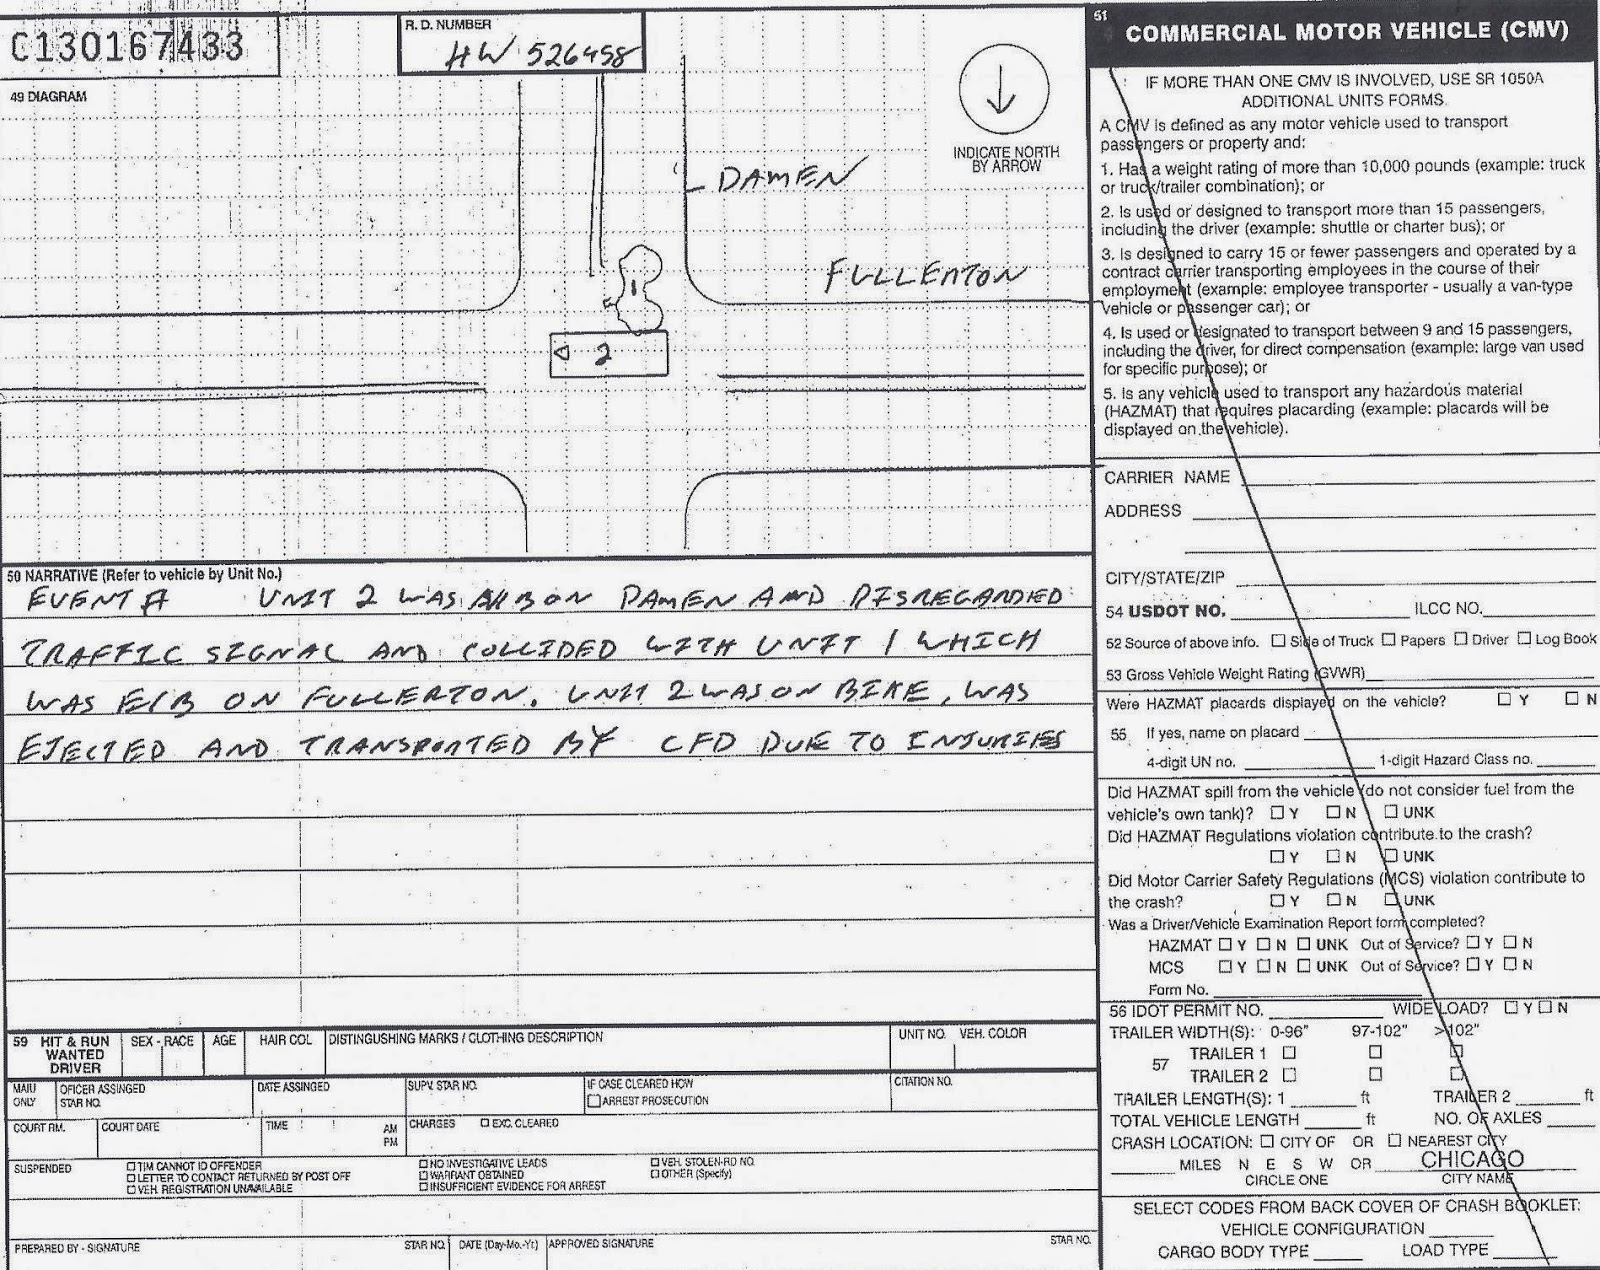 C130167433
R. D. NUMBER
HW 526458
49 DIAGRAM
INDICATE NORTH
BY ARROW
DAMEN
FULLERTON
1
2
50 NARRATIVE (Refer to vehicle by Unit No.)
EVENT # UNIT 2 WAS N/B ON DAMEN AND DISREGARDED
TRAFFIC SIGNAL AND COLLIDED WITH UNIT 1 WHICH
WAS E/B ON FULLERTON. UNIT 2 WAS ON BIKE, WAS
EJECTED AND TRANSPORTED BY CFD DUE TO INJURIES
59 HIT & RUN
WANTED
DRIVER
SEX - RACE
AGE
HAIR COL
DISTINGUSHING MARKS / CLOTHING DESCRIPTION
UNIT NO. VEH. COLOR
MAIU
ONLY
OFICER ASSINGED
STAR NO.
DATE ASSINGED
SUPV. STAR NO.
IF CASE CLEARED HOW
ARREST PROSECUTION
CITATION NO.
COURT RM.
COURT DATE
TIME
AM
PM
CHARGES EXC. CLEARED
SUSPENDED
TIM CANNOT ID OFFENDER
LETTER TO CONTACT RETURNED BY POST OFF
VEH. REGISTRATION UNAVAILABLE
NO INVESTIGATIVE LEADS
WARRANT OBTAINED
INSUFFICIENT EVIDENCE FOR ARREST
VEH. STOLEN-RD NO.
OTHER (Specify)
PREPARED BY - SIGNATURE
STAR NO.
DATE (Day-Mo.-Yr.)
APPROVED SIGNATURE
STAR NO.
51
COMMERCIAL MOTOR VEHICLE (CMV)
IF MORE THAN ONE CMV IS INVOLVED, USE SR 1050A
ADDITIONAL UNITS FORMS.
A CMV is defined as any motor vehicle used to transport
passengers or property and:
1. Has a weight rating of more than 10,000 pounds (example: truck
or truck/trailer combination); or
2. Is used or designed to transport more than 15 passengers,
including the driver (example: shuttle or charter bus); or
3. Is designed to carry 15 or fewer passengers and operated by a
contract carrier transporting employees in the course of their
employment (example: employee transporter - usually a van-type
vehicle or passenger car); or
4. Is used or designated to transport between 9 and 15 passengers,
including the driver, for direct compensation (example: large van used
for specific purpose); or
5. Is any vehicle used to transport any hazardous material
(HAZMAT) that requires placarding (example: placards will be
displayed on the vehicle).
CARRIER NAME
ADDRESS
CITY/STATE/ZIP
54 USDOT NO. ILCC NO.
52 Source of above info. Side of Truck Papers Driver Log Book
53 Gross Vehicle Weight Rating (GVWR)
Were HAZMAT placards displayed on the vehicle? Y N
55 If yes, name on placard
4-digit UN no. 1-digit Hazard Class no.
Did HAZMAT spill from the vehicle (do not consider fuel from the
vehicle's own tank)? Y N UNK
Did HAZMAT Regulations violation contribute to the crash?
Y N UNK
Did Motor Carrier Safety Regulations (MCS) violation contribute to
the crash? Y N UNK
Was a Driver/Vehicle Examination Report form completed?
HAZMAT Y N UNK Out of Service? Y N
MCS Y N UNK Out of Service? Y N
Form No.
56 IDOT PERMIT NO. WIDE LOAD? Y N
TRAILER WIDTH(S): 0-96" 97-102" >102"
57 TRAILER 1
TRAILER 2
TRAILER LENGTH(S): 1 ft TRAILER 2 ft
TOTAL VEHICLE LENGTH ft NO. OF AXLES
CRASH LOCATION: CITY OF OR NEAREST CITY
MILES N E S W OR CHICAGO
CIRCLE ONE CITY NAME
SELECT CODES FROM BACK COVER OF CRASH BOOKLET:
VEHICLE CONFIGURATION
CARGO BODY TYPE LOAD TYPE